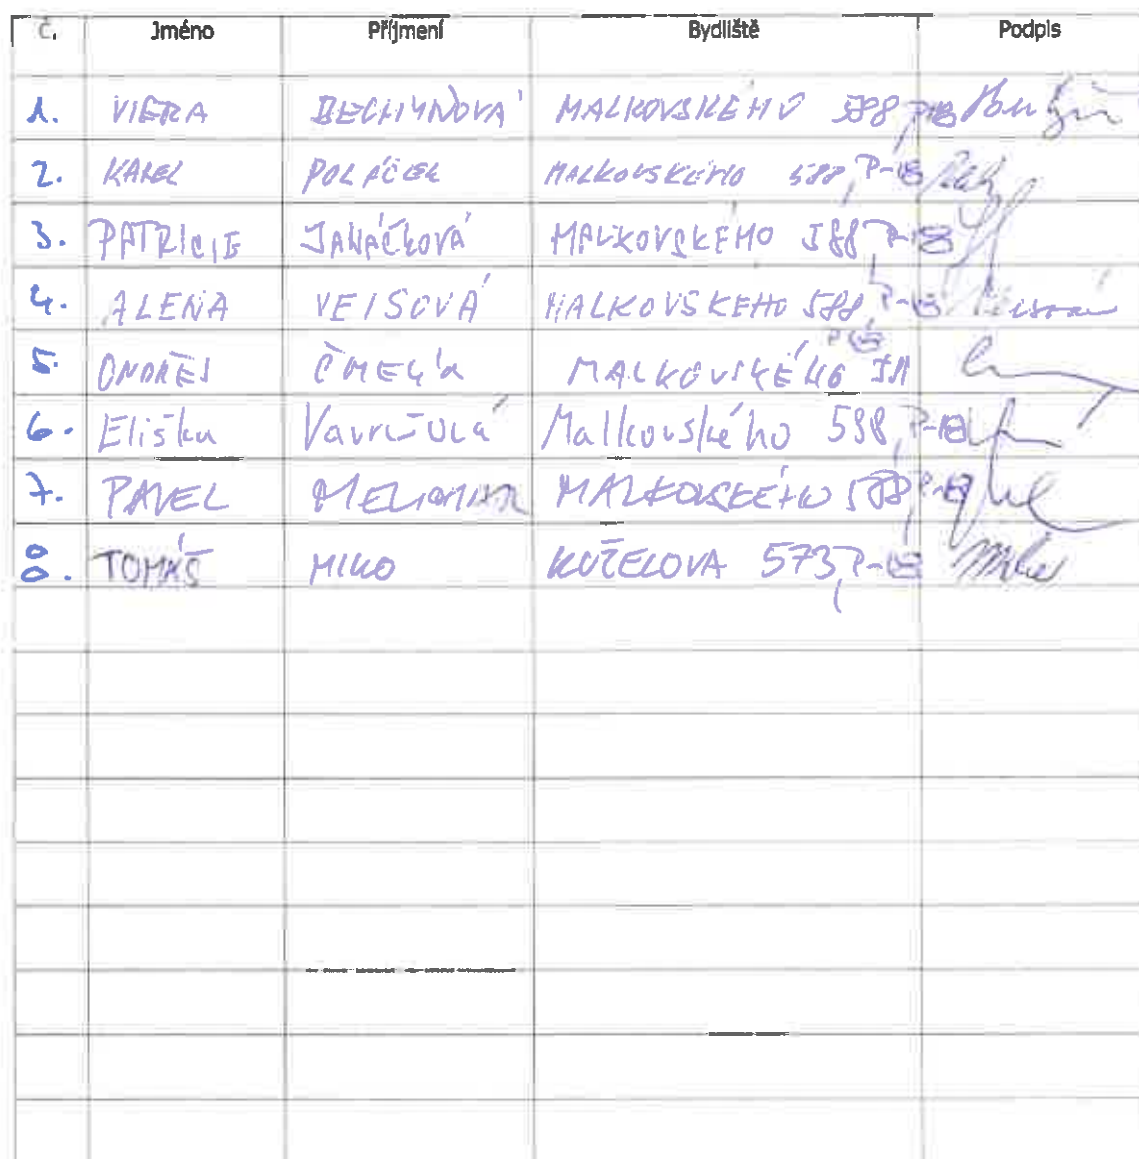 Č. Jméno Příjmení Bydliště Podpis
1. VIERA BECHYŇOVÁ MALKOVSKÉHO 588, P-18
2. KAREL POLÁČEK MALKOVSKÉHO 588, P-18
3. PATRICIE JANÁČKOVÁ MALKOVSKÉHO 588, P-18
4. ALENA VEISOVÁ MALKOVSKEHO 588, P-18
5. ONDŘEJ MALKOVSKÉHO P-18
6. Eliška Malkovského 588, P-18
7. PAVEL MALKOVSKÉHO 588, P-18
8. TOMÁŠ MIKO KUŽELOVA 573, P-18